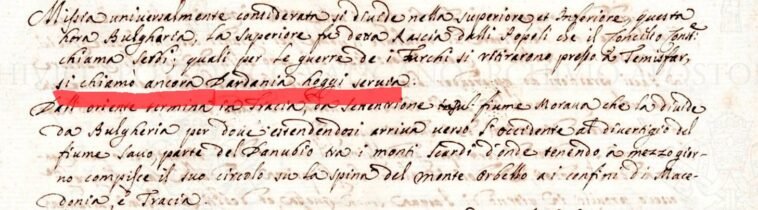 Missia universalmente considerata si divide nella superiore et Inferiore, questa
hora Bulgharia, la superiore fu detta Rascia dalli Popoli che il Toncilio
chiama Serbi; quali per le guerre de i Turchi si ritirarono presso à Temisfar,
si chiamò ancora Dardania hoggi servia.
Dall'oriente termina la Tracia, da settentrione fiume Morava che la divide
da Bulgheria per dove estendendosi arriva verso l'occidente al divertigio del
fiume savo parte del Danubio tra i monti scardi d'onde tenendo à mezzo gior-
no compisce il suo circolo su la spina del monte Orbello a i confini di Mace-
donia, è Tracia